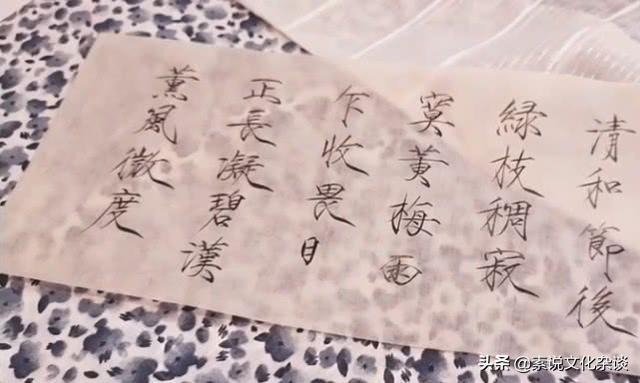 清和節後
緑枝稠寂
寞黄梅雨
乍收畏日
正長凝碧漢
薰風微度
头条 @素说文化杂谈